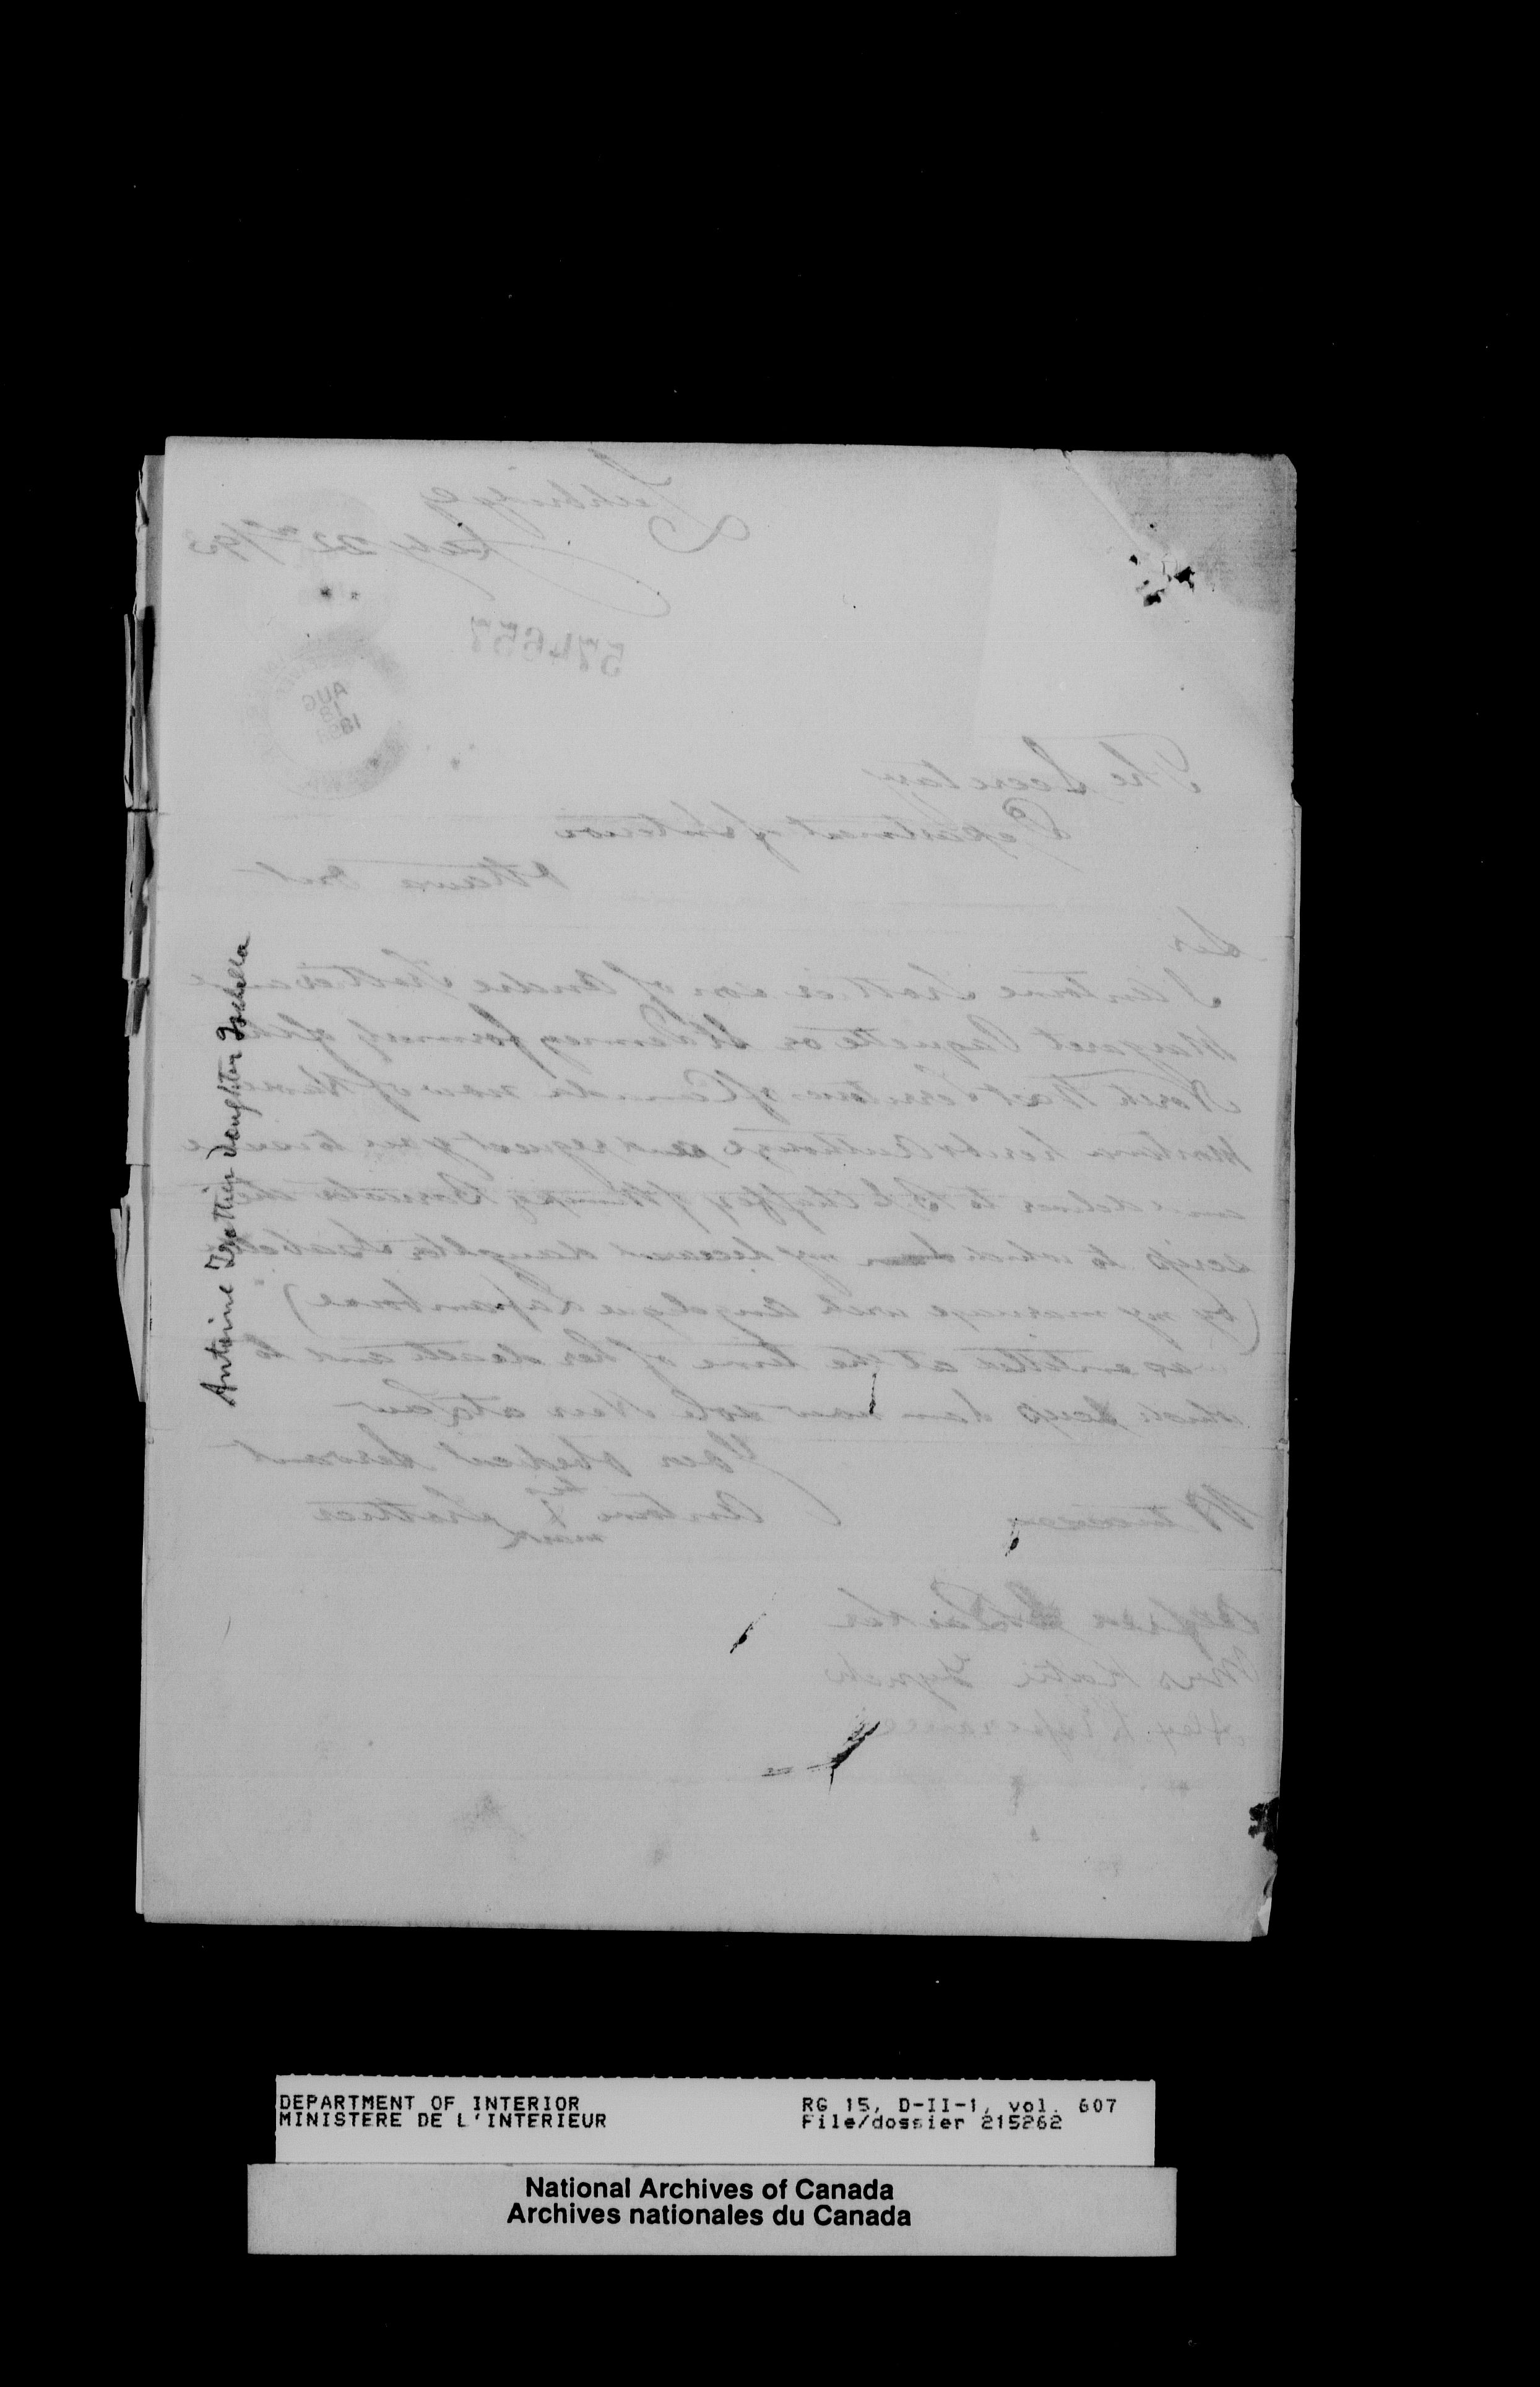 Lethbridge
July 22nd/93
574657
AUG
The Secretary
Department of Interior
Ottawa Ont
Sir
I Antoine Trottier son of Andre Trottier and
Margaret Paquette or St Denney formerly of the
North West Territories of Canada now of
Montana hereby Authorize and request you to issue
and deliver to B S Chaffey of Winnipeg Manitoba the
scrip to which my deceased daughter Isabella
(by my marriage with Angelique Laframboise)
was entitled at the time of her death and to
which Scrip I am now sole Heir at Law
Your obedient Servant
his
Antoine X Trottier
mark
Witnesses
Mrs Katie Lynch
Antoine Trottier daughter Isabella
DEPARTMENT OF INTERIOR
MINISTERE DE L'INTERIEUR
RG 15, D-II-1, vol. 607
File/dossier 215262
National Archives of Canada
Archives nationales du Canada